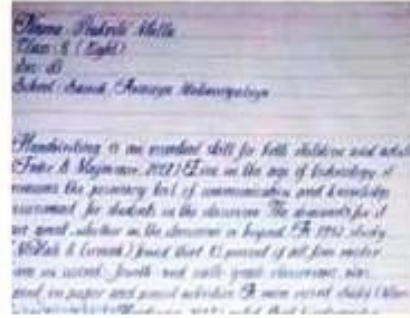 Name: Prakriti Malla
Class: 8 (Eight)
Sec: 'B'
School: Sainik Awasiya Mahavidyalaya
Handwriting is an essential skill for both children and adults
(Feder & Majnemer, 2007) Even in the age of technology, it
remains the primary tool of communication and knowledge
assessment for students in the classroom. The demands for it
are great, whether in the classroom or beyond. A 1992 study
(McHale & Cermak) found that 85 percent of all fine motor
time in second, fourth and sixth grade classrooms was
spent on paper and pencil activities. A more recent study (Marr